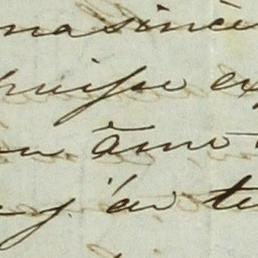 ma sincè
puisse ex
âme
j'ai te